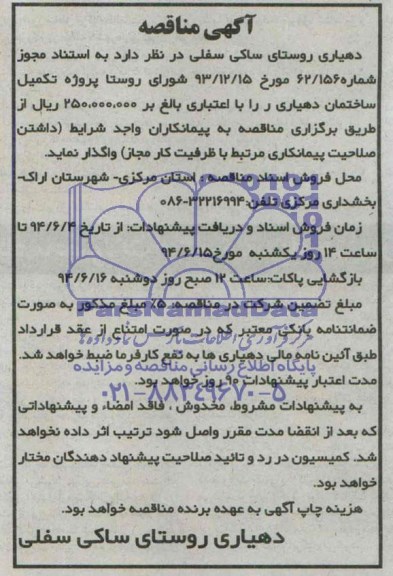 آگهی مناقصه
دهیاری روستای ساکی سفلی در نظر دارد به استناد مجوز
شماره۶۲/۱۵۶ مورخ ۹۳/۱۲/۱۵ شورای روستا پروژه تکمیل
ساختمان دهیاری ر را با اعتباری بالغ بر ۲۵۰,۰۰۰,۰۰۰ ریال از
طریق برگزاری مناقصه به پیمانکاران واجد شرایط (داشتن
صلاحیت پیمانکاری مرتبط با ظرفیت کار مجاز) واگذار نماید.
محل فروش اسناد مناقصه : استان مرکزی- شهرستان اراک-
بخشداری مرکزی تلفن:۳۲۲۱۶۹۹۴-۰۸۶
زمان فروش اسناد و دریافت پیشنهادات: از تاریخ ۹۴/۶/۴ تا
ساعت ۱۴ روز یکشنبه مورخ۹۴/۶/۱۵
بازگشایی پاکات:ساعت ۱۲ صبح روز دوشنبه ۹۴/۶/۱۶
مبلغ تضمین شرکت در مناقصه: ۵٪ مبلغ مذکور به صورت
ضمانتنامه بانکی معتبر که در صورت امتناع از عقد قرارداد
طبق آئین نامه مالی دهیاری ها به نفع کارفرما ضبط خواهد شد.
مدت اعتبار پیشنهادات ۹۰ روز خواهد بود.
به پیشنهادات مشروط، مخدوش ، فاقد امضاء و پیشنهاداتی
که بعد از انقضا مدت مقرر واصل شود ترتیب اثر داده نخواهد
شد. کمیسیون در رد و تائید صلاحیت پیشنهاد دهندگان مختار
خواهد بود.
هزینه چاپ آگهی به عهده برنده مناقصه خواهد بود.
دهیاری روستای ساکی سفلی
ParsNamadData
پایگاه اطلاع رسانی مناقصه و مزایده
۰۲۱-۸۸۳۴۹۶۷۰-۵